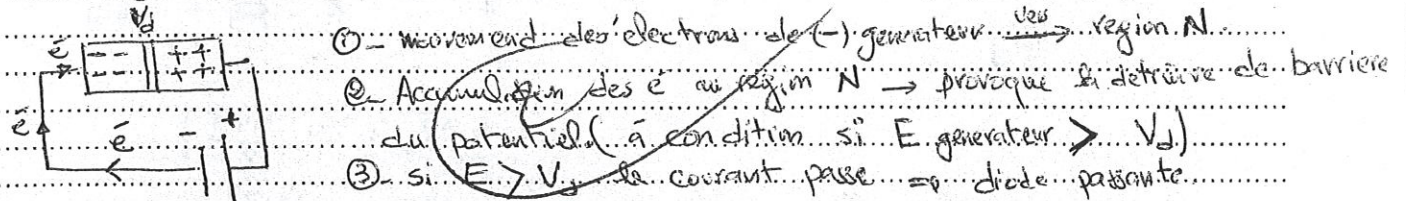 Vd
é
- - + +
- - + +
é
é
- +
① - mouvemend des électrons de (-) generateur vers → region N
②- Accumulation des é au région N → provoque la detruire de barriere
du potentiel (à condition si E generateur > Vd)
③- si E > Vd le courant passe ⇒ diode passante